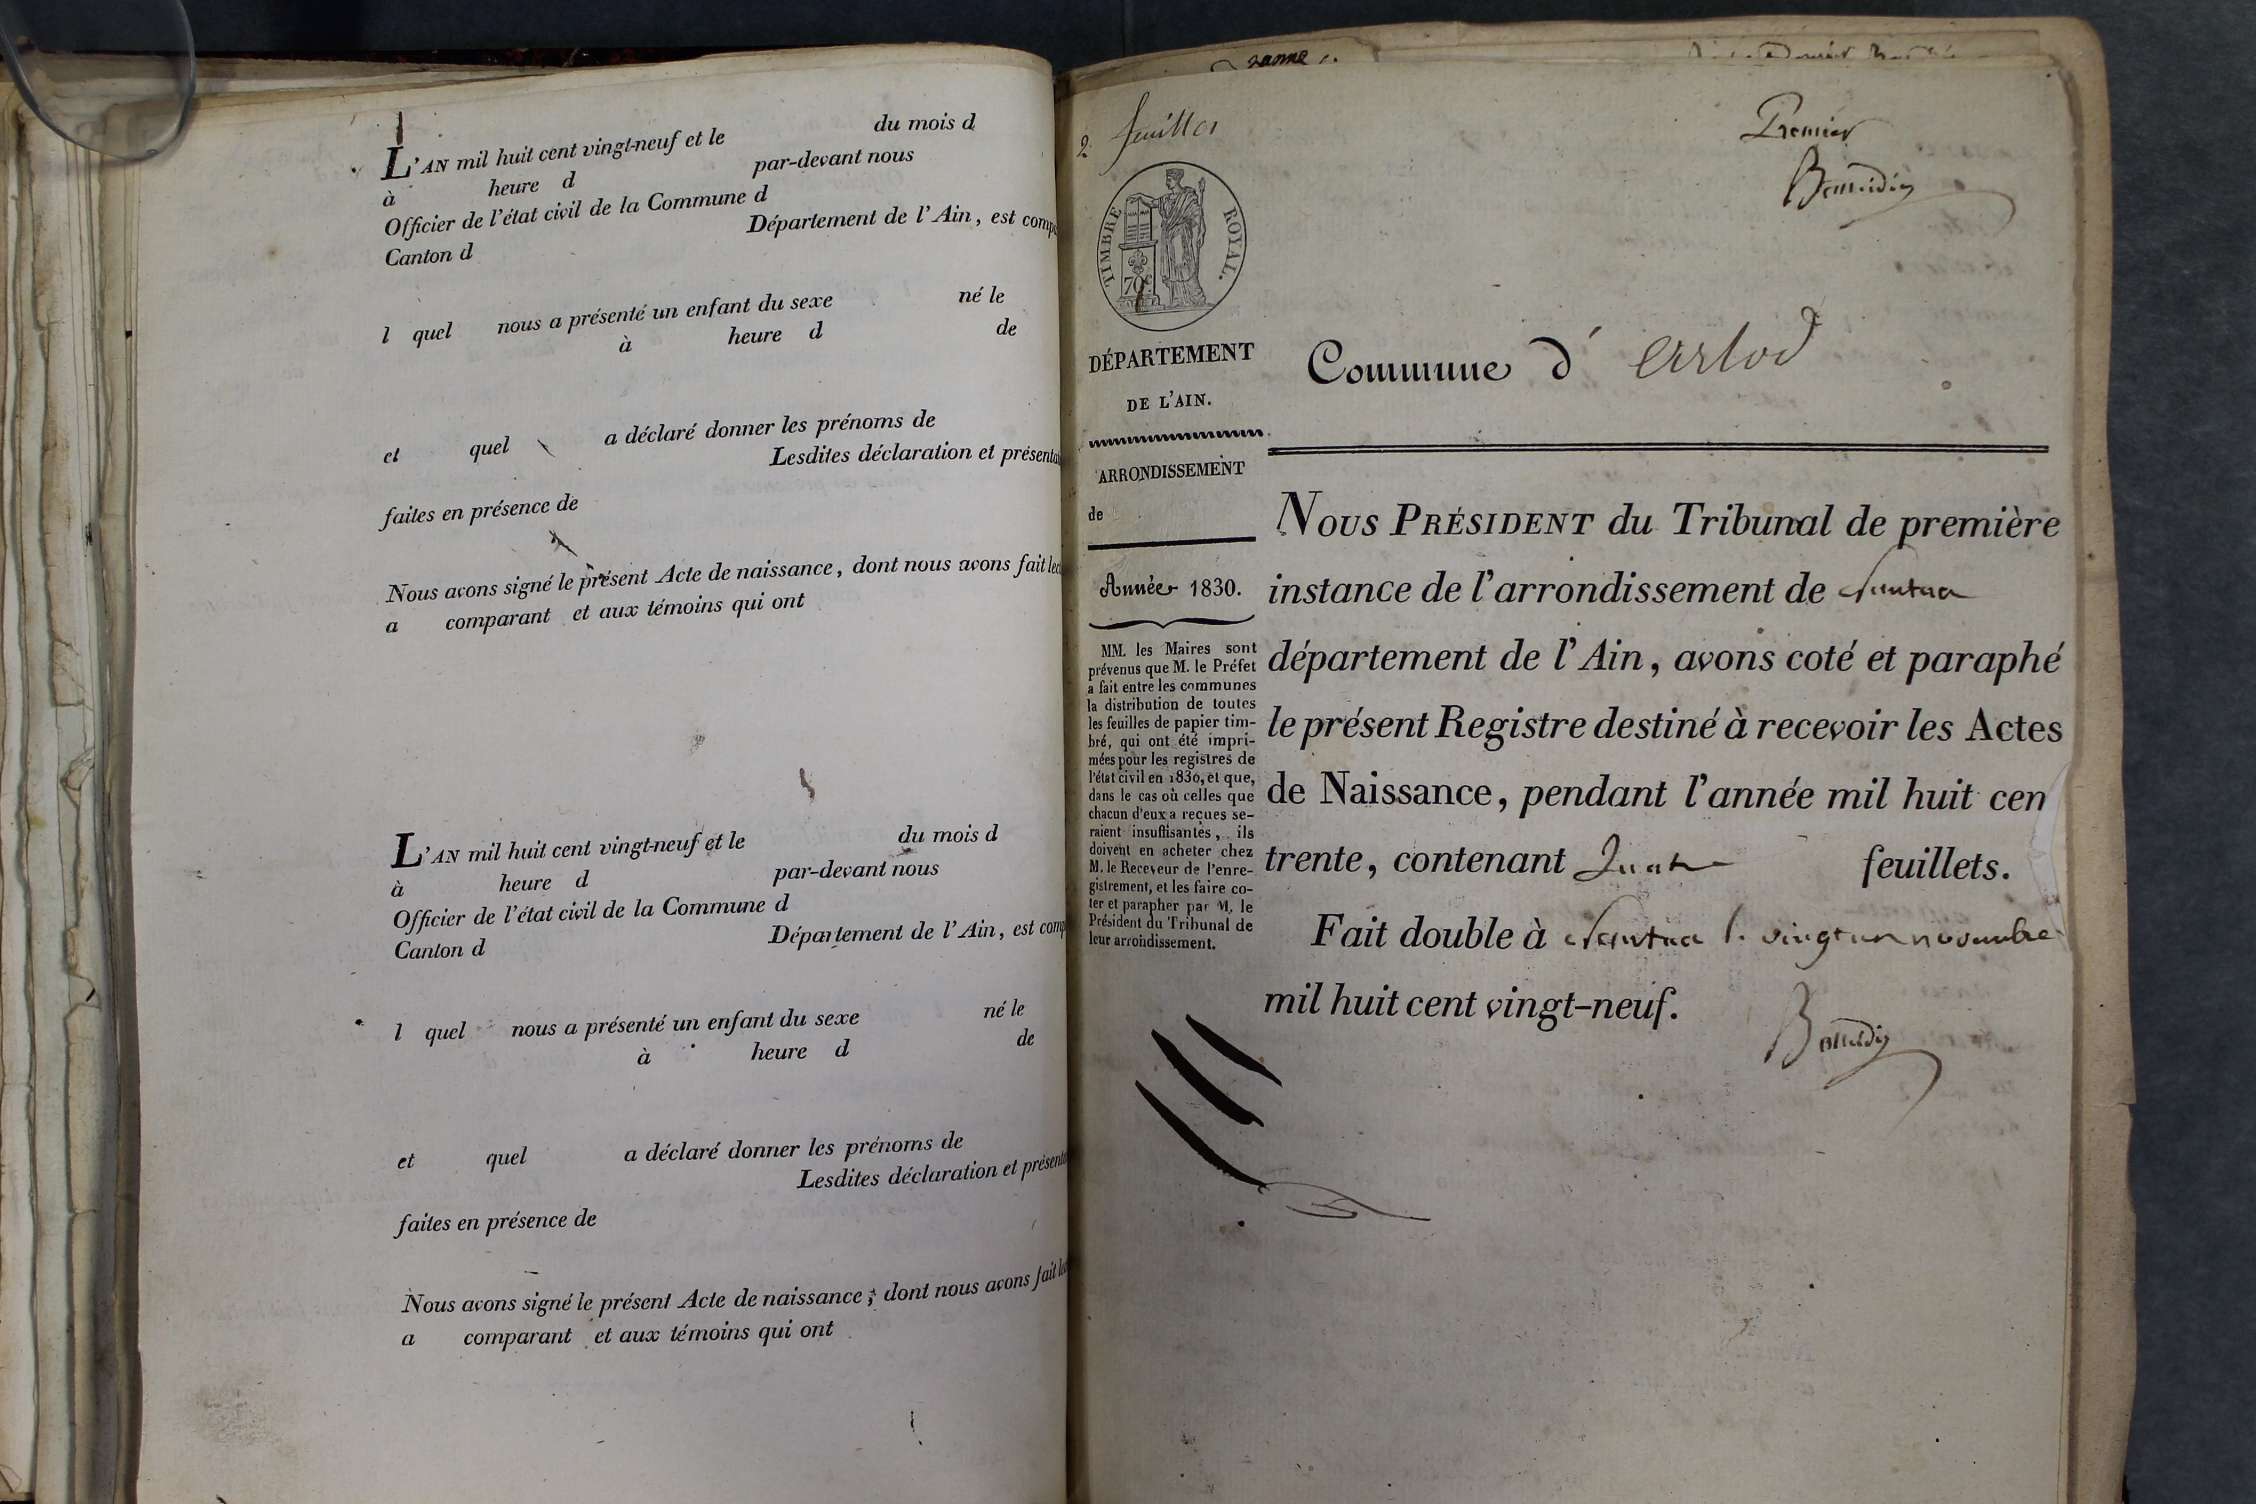 du mois d
L'AN mil huit cent vingt-neuf et le
par-devant nous
à heure d
Officier de l'état civil de la Commune d
Département de l'Ain, est comp
Canton d
né le
l quel nous a présenté un enfant du sexe
de
à heure d
et quel a déclaré donner les prénoms de
Lesdites déclaration et présenta
faites en présence de
Nous avons signé le présent Acte de naissance, dont nous avons fait lec
a comparant et aux témoins qui ont
du mois d
L'AN mil huit cent vingt-neuf et le
par-devant nous
à heure d
Officier de l'état civil de la Commune d
Département de l'Ain, est comp
Canton d
né le
l quel nous a présenté un enfant du sexe
de
à heure d
et quel a déclaré donner les prénoms de
Lesdites déclaration et présenta
faites en présence de
Nous avons signé le présent Acte de naissance, dont nous avons fait lec
a comparant et aux témoins qui ont
2 feuilles
Premier
TIMBRE ROYAL.
70c
DÉPARTEMENT
DE L'AIN.
ARRONDISSEMENT
de
Année 1830.
MM. les Maires sont
prévenus que M. le Préfet
a fait entre les communes
la distribution de toutes
les feuilles de papier tim-
bré, qui ont été impri-
mées pour les registres de
l'état civil en 1830, et que,
dans le cas où celles que
chacun d'eux a reçues se-
raient insuffisantes, ils
doivent en acheter chez
M. le Receveur de l'enre-
gistrement, et les faire co-
ter et parapher par M. le
Président du Tribunal de
leur arrondissement.
Commune d' Arlod
NOUS PRÉSIDENT du Tribunal de première
instance de l'arrondissement de Nantua
département de l'Ain, avons coté et paraphé
le présent Registre destiné à recevoir les Actes
de Naissance, pendant l'année mil huit cen
trente, contenant Quatre feuillets.
Fait double à Nantua le vingt un novembre
mil huit cent vingt-neuf.